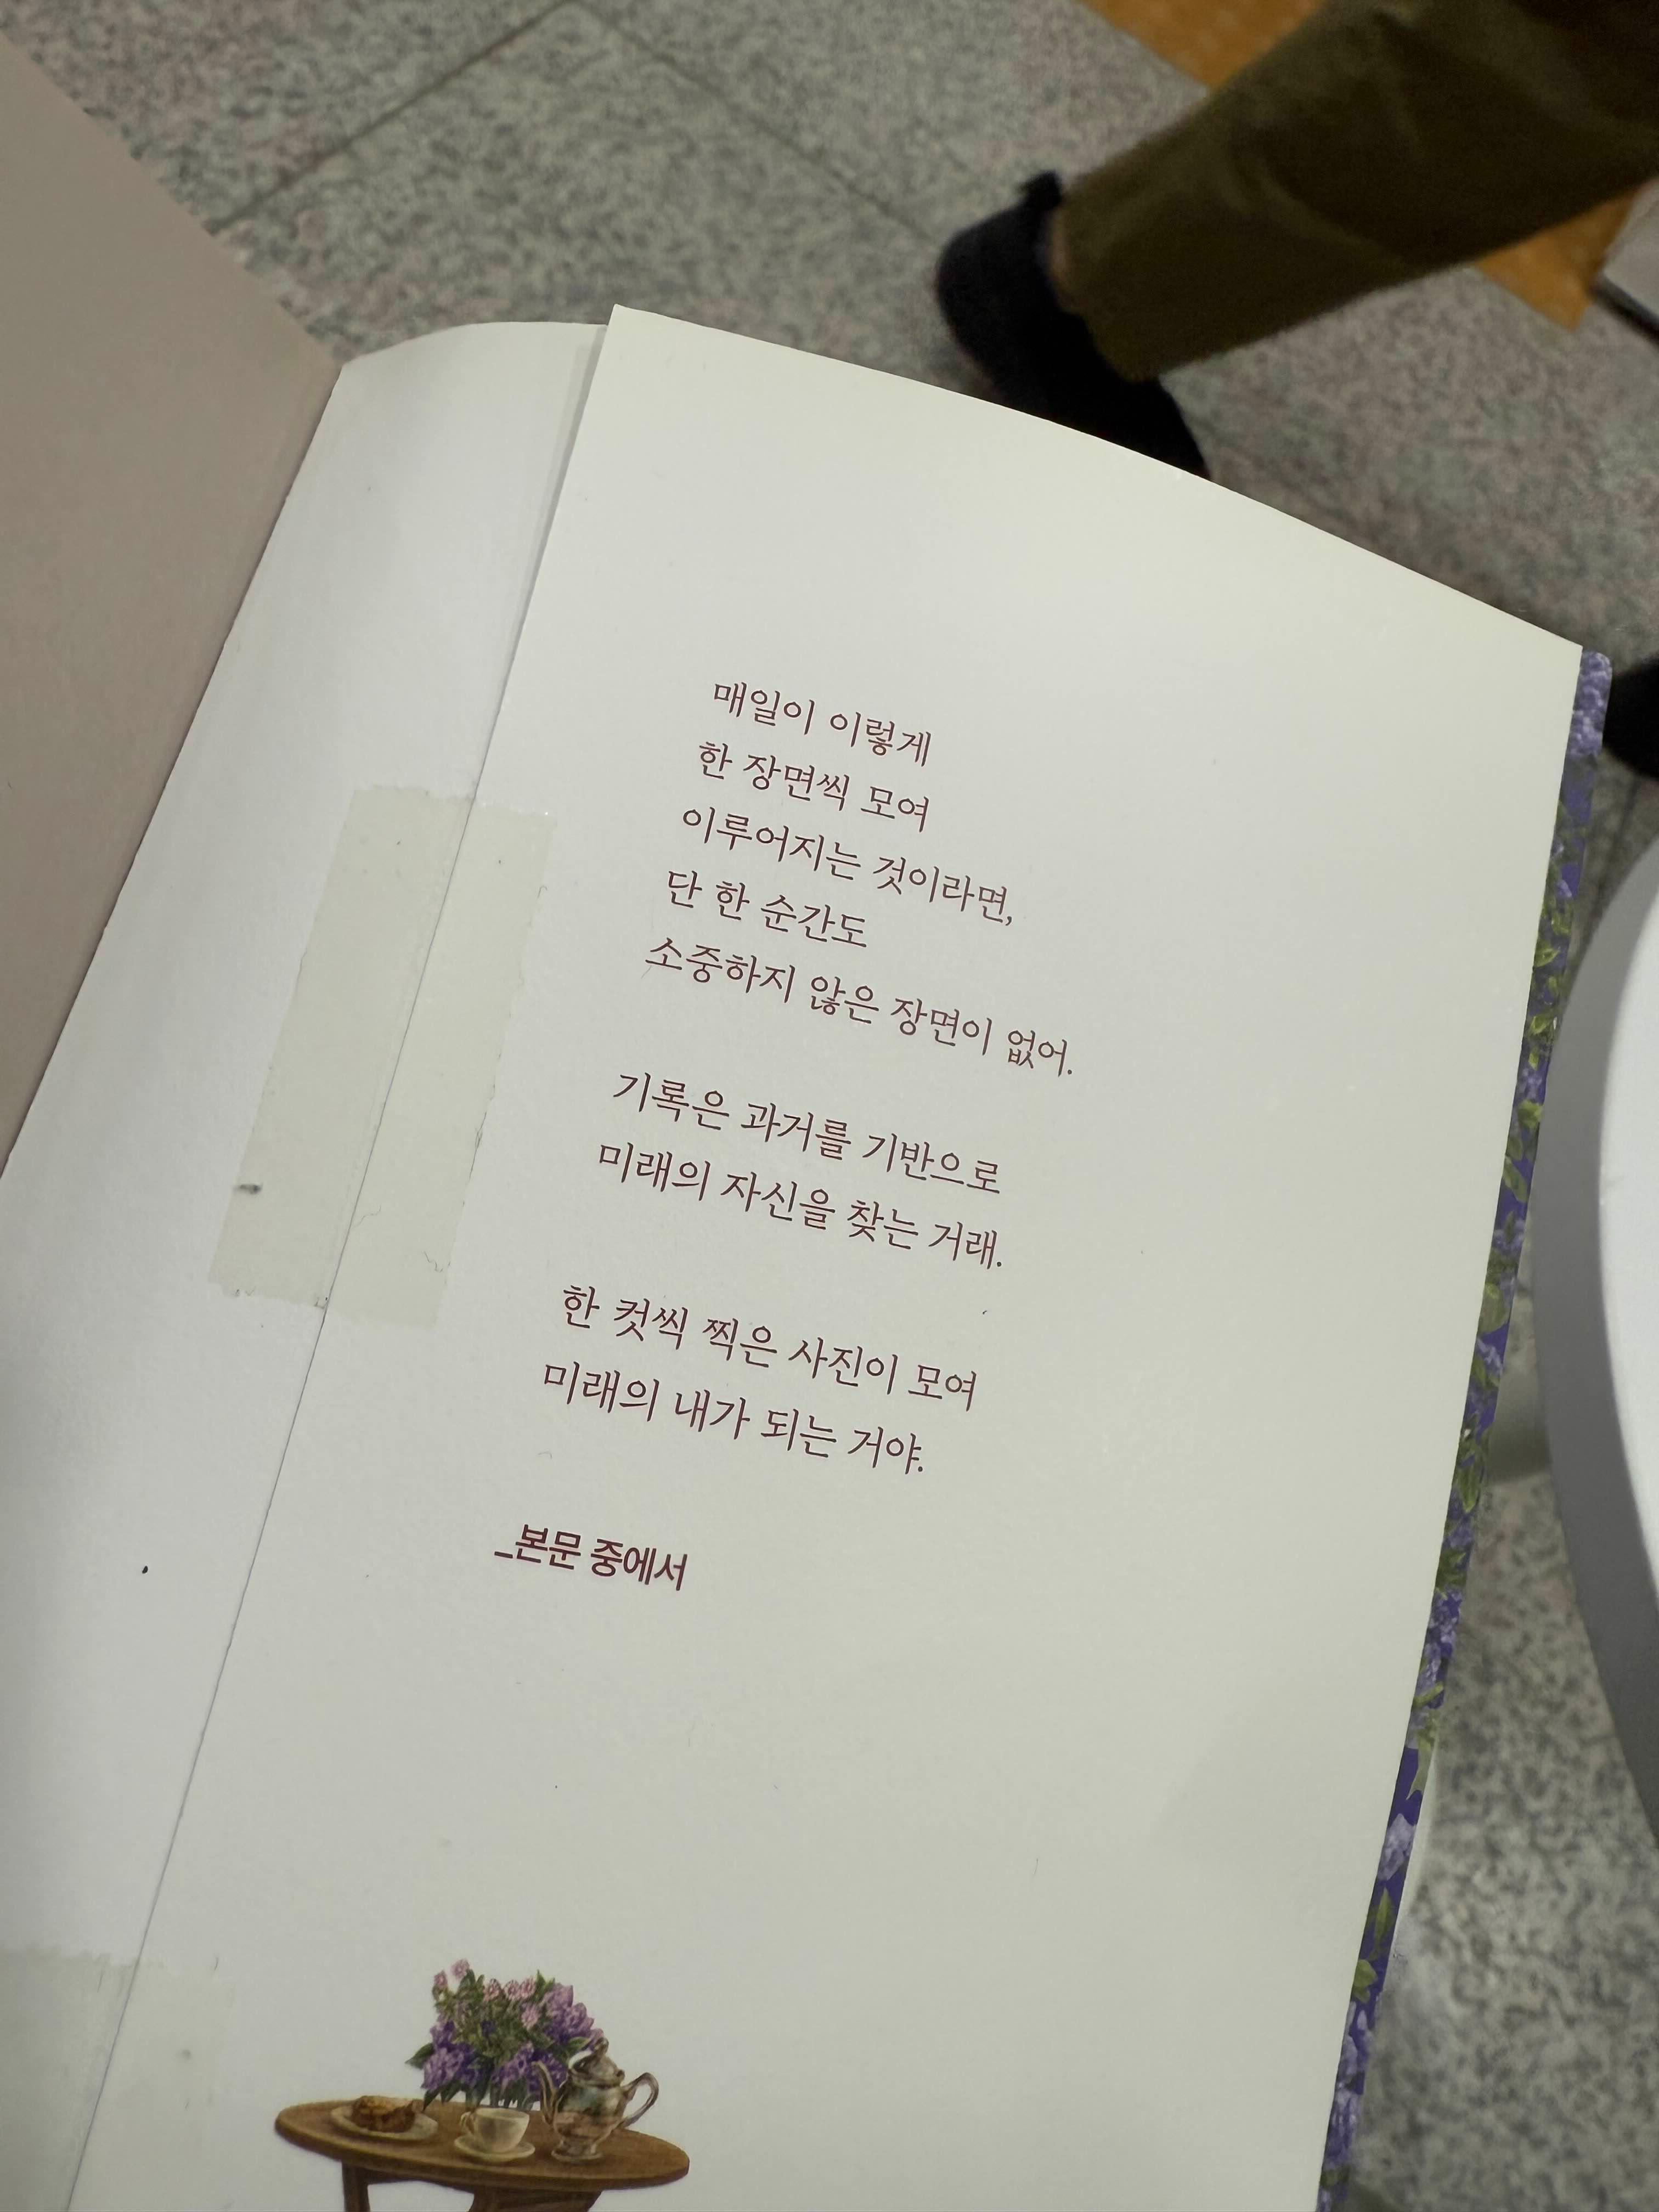 매일이 이렇게
한 장면씩 모여
이루어지는 것이라면,
단 한 순간도
소중하지 않은 장면이 없어.
기록은 과거를 기반으로
미래의 자신을 찾는 거래.
한 컷씩 찍은 사진이 모여
미래의 내가 되는 거야.
_본문 중에서